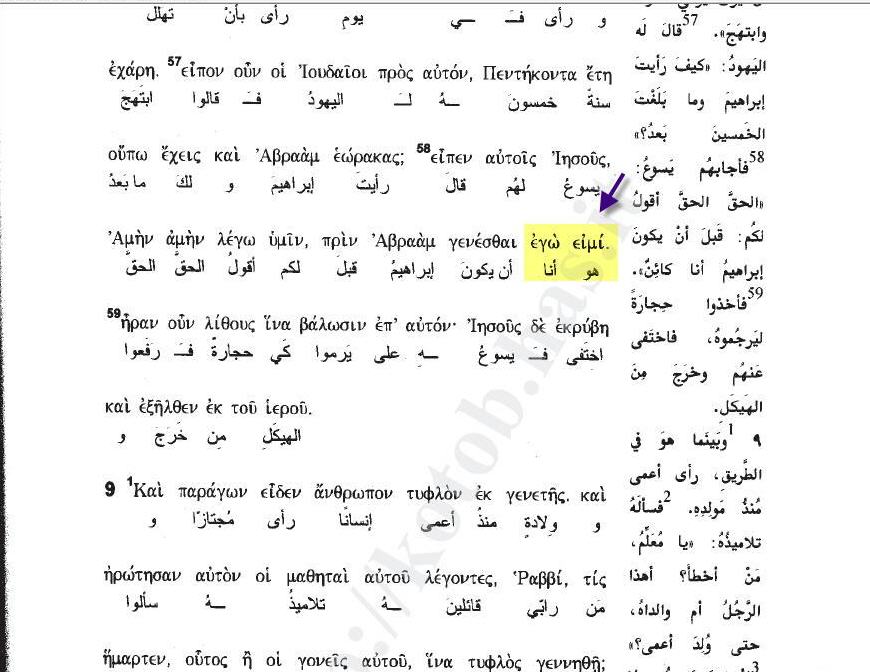 و رأى فـ ـي يوم رأى بأن تهلل
ἐχάρη. 57εἶπον οὖν οἱ Ἰουδαῖοι πρὸς αὐτόν, Πεντήκοντα ἔτη
سنةً خمسونَ ـهُ لـَ اليهودُ فـَ قالوا ابتَهَجَ
οὔπω ἔχεις καὶ Ἀβραὰμ ἑώρακας; 58εἶπεν αὐτοῖς Ἰησοῦς,
يسوعُ لهُم قالَ رأيتَ إبراهيمَ و لكَ ما بَعدُ
Ἀμὴν ἀμὴν λέγω ὑμῖν, πρὶν Ἀβραὰμ γενέσθαι ἐγὼ εἰμί.
هو أنا أن يكونَ إبراهيمُ قبلَ لكم أقولُ الحقَّ الحقَّ
59ἦραν οὖν λίθους ἵνα βάλωσιν ἐπ' αὐτόν· Ἰησοῦς δὲ ἐκρύβη
اختَفى فـَ يسوعُ ـهِ على يَرموا كَي حجارةً فـَ رفَعوا
καὶ ἐξῆλθεν ἐκ τοῦ ἱεροῦ.
الهيكَلِ مِن خَرَجَ و
9 1Καὶ παράγων εἶδεν ἄνθρωπον τυφλὸν ἐκ γενετῆς. καὶ
و وِلادةٍ منذُ أعمى إنسانًا رأى مُجتازًا و
ἠρώτησαν αὐτὸν οἱ μαθηταὶ αὐτοῦ λέγοντες, Ῥαββί, τίς
مَن رابّي قائلينَ ـهُ تلاميذُ ـهُ سألوا
ἥμαρτεν, οὗτος ἢ οἱ γονεῖς αὐτοῦ, ἵνα τυφλὸς γεννηθῇ;
وابتهَجَ». 57قالَ لَه
اليَهودُ: «كيفَ رَأيتَ
إبراهيمَ وما بَلَغْتَ
الخَمسينَ بَعدُ؟»
58فأجابهُم يَسوعُ:
«الحقَّ الحقَّ أقولُ
لكُم: قَبلَ أنْ يكونَ
إبراهيمُ أنا كائِنٌ».
59فأخذوا حِجارَةً
ليَرجُموهُ، فاختَفى
عَنهُم وخرَجَ مِنَ
الهيكَلِ.
٩ 1وبَينَما هوَ في
الطَّريقِ، رأى أعمى
مُنذُ مَولِدِهِ. 2فسألَهُ
تلاميذُهُ: «يا مُعَلِّمُ،
مَنْ أخطأَ؟ أهذا
الرَّجُلُ أم والداهُ،
حتى وُلِدَ أعمى؟»